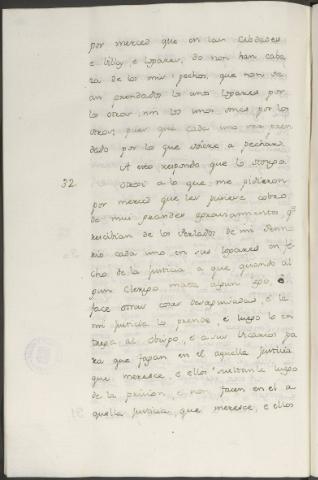 por merced que en las Cibdades
e Villas, e Logares, do non han cabe
za de los mis pechos, que non se
an prendados los unos Logares por
los otros, nin los unos omes por los
otros, pues que cada uno sea pren
dado por lo que oviere a pechar.
A esto respondo que lo otorgo.
32 Otrosi a lo que me pidieron
por merced que les pusiese cobro
de mui grandes agraviamientos, q.e
rescibian de los Perlados de mi Senno
rio cada uno en sus Logares en fe
cho de la Justicia a que quando al
gun Clerigo mata algun ome, o
face otras cosas desaguisadas, e la
mi Justicia lo prende, e luego lo en
trega al Obispo, e a sus Vicarios pa
ra que fagan en el aquella Justicia
que meresce, e ellos sueltanle luego
de la prision, e non facen en el a
quella Justicia, que meresce, e ellos